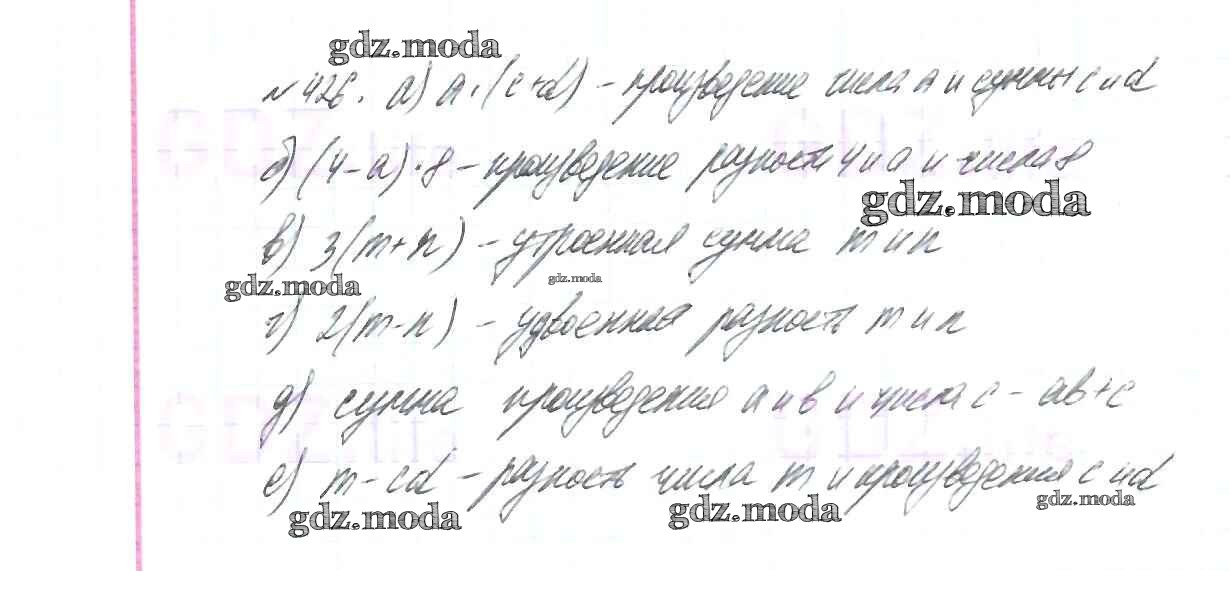 gdz.moda
№ 426. а) a·(c+d) – произведение числа a и суммы c и d
б) (4-a)·8 – произведение разности 4 и a и числа 8
gdz.moda
в) 3(m+n) – утроенная сумма m и n
gdz.moda gdz.moda
г) 2(m-n) – удвоенная разность m и n
д) сумма произведения a и b и числа c – ab+c
е) m-cd – разность числа m и произведения c и d
gdz.moda gdz.moda gdz.moda